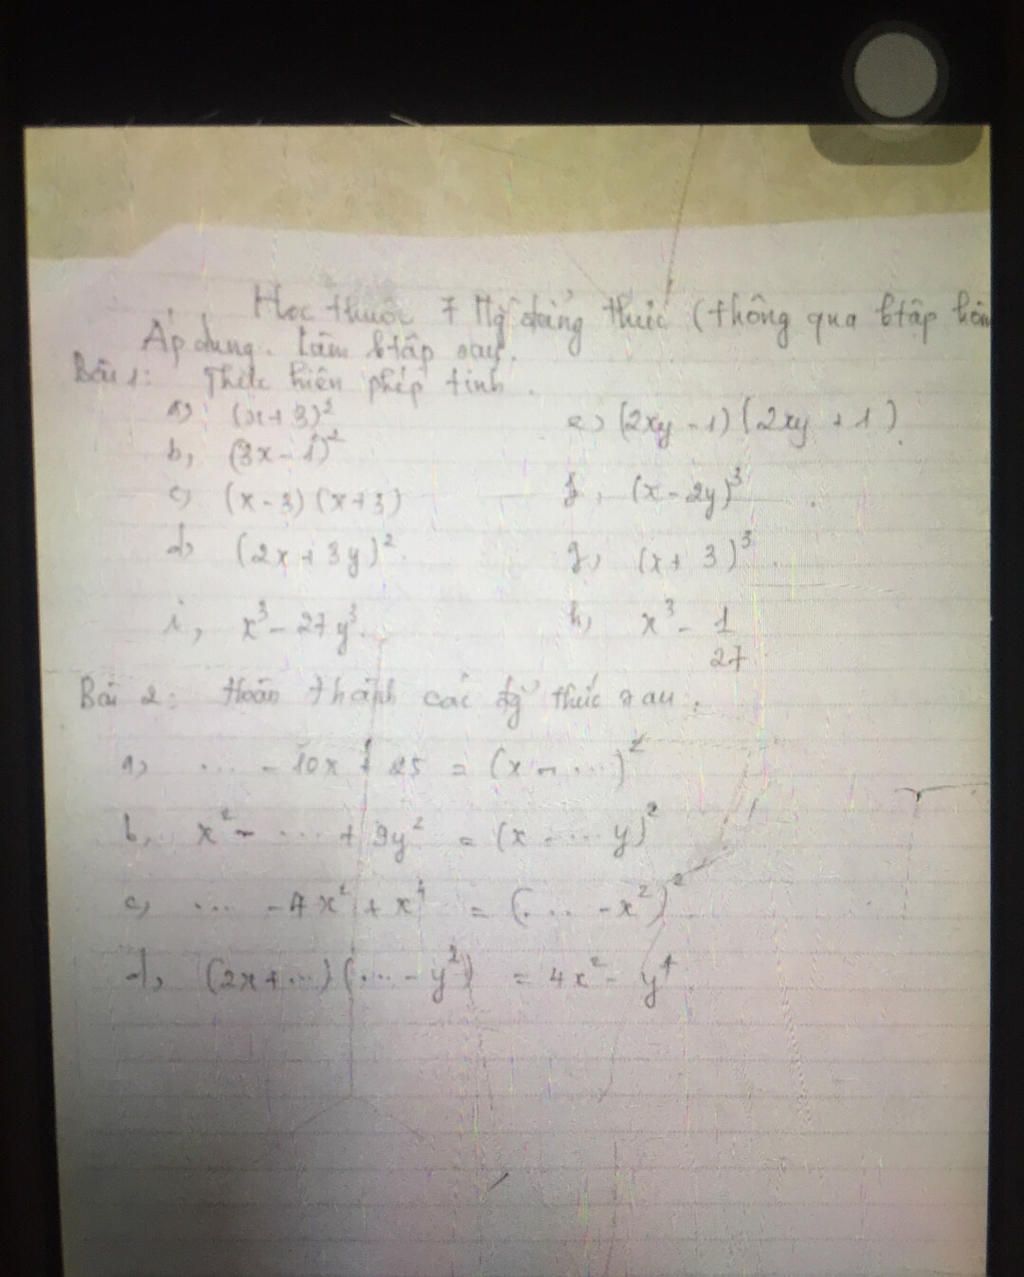 Học thuộc 7 Hg đẳng thức (thông qua btập
Áp dụng. Làm btập sau.
Bài 1: Thực hiện phép tính.
a) (x+3)² e) (2xy - 1)(2xy + 1).
b, (3x - 1)²
c) (x - 3)(x+3) f, (x - 2y)³
d) (2x + 3y)². g, (x + 3)³.
i, x³ - 27y³. h, x³ - 1/27
Bài 2: Hoàn thành các đg thức sau:
a) ... - 10x + 25 = (x - ...)²
b, x² - ... + 9y² = (x - ... y)²
c) ... - 4x² + x⁴ = (... - x²)²
d, (2x + ...)(... - y²) = 4x² - y⁴